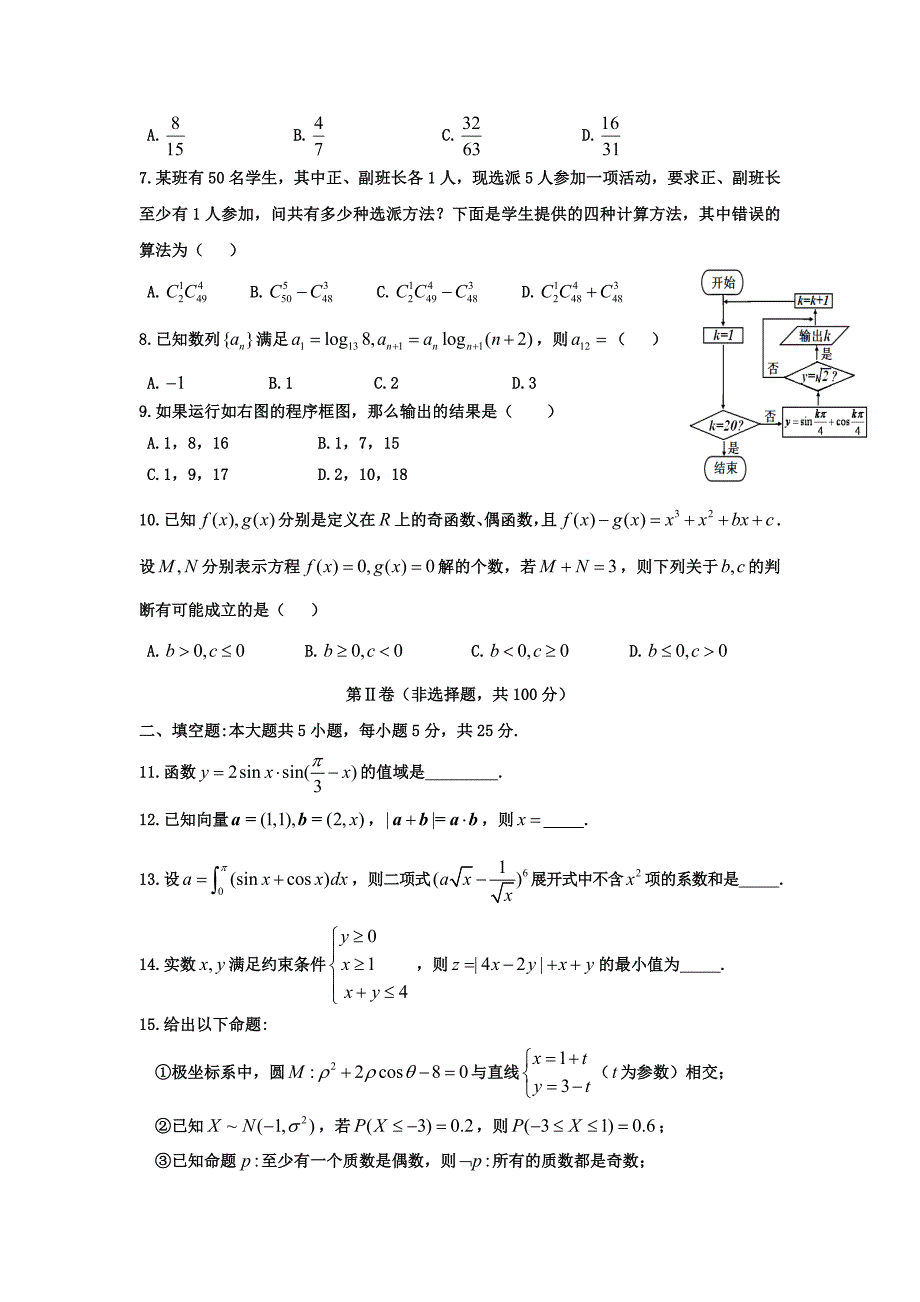 A. 8/15 B. 4/7 C. 32/63 D. 16/31
7.某班有50名学生，其中正、副班长各1人，现选派5人参加一项活动，要求正、副班长
至少有1人参加，问共有多少种选派方法？下面是学生提供的四种计算方法，其中错误的
算法为（ ）
A. C₂¹C₄₉⁴ B. C₅₀⁵−C₄₈³ C. C₂¹C₄₉⁴−C₄₈³ D. C₂¹C₄₈⁴+C₄₈³
8.已知数列{aₙ}满足a₁=log₁₃8,aₙ₊₁=aₙlogₙ₊₁(n+2)，则a₁₂=（ ）
A.−1 B.1 C.2 D.3
9.如果运行如右图的程序框图，那么输出的结果是（ ）
A.1，8，16 B.1，7，15
C.1，9，17 D.2，10，18
开始
k=k+1
k=1
输出k
是
否
y=√2?
k=20?
否
y=sin kπ/4+cos kπ/4
是
结束
10.已知f(x),g(x)分别是定义在R上的奇函数、偶函数,且f(x)−g(x)=x³+x²+bx+c.
设M,N分别表示方程f(x)=0,g(x)=0解的个数，若M+N=3，则下列关于b,c的判
断有可能成立的是（ ）
A.b>0,c≤0 B.b≥0,c<0 C.b<0,c≥0 D.b≤0,c>0
第Ⅱ卷（非选择题，共100分）
二、填空题:本大题共5小题，每小题5分，共25分.
11.函数y=2sin x·sin(π/3−x)的值域是_________.
12.已知向量a=(1,1),b=(2,x)，|a+b|=a·b，则x=_____.
13.设a=∫₀^π(sin x+cos x)dx，则二项式(a√x−1/√x)⁶展开式中不含x²项的系数和是_____.
14.实数x,y满足约束条件{y≥0 x≥1 x+y≤4，则z=|4x−2y|+x+y的最小值为_____.
15.给出以下命题:
①极坐标系中，圆M:ρ²+2ρcosθ−8=0与直线{x=1+t y=3−t（t为参数）相交;
②已知X~N(−1,σ²)，若P(X≤−3)=0.2，则P(−3≤X≤1)=0.6;
③已知命题p:至少有一个质数是偶数，则¬p:所有的质数都是奇数;